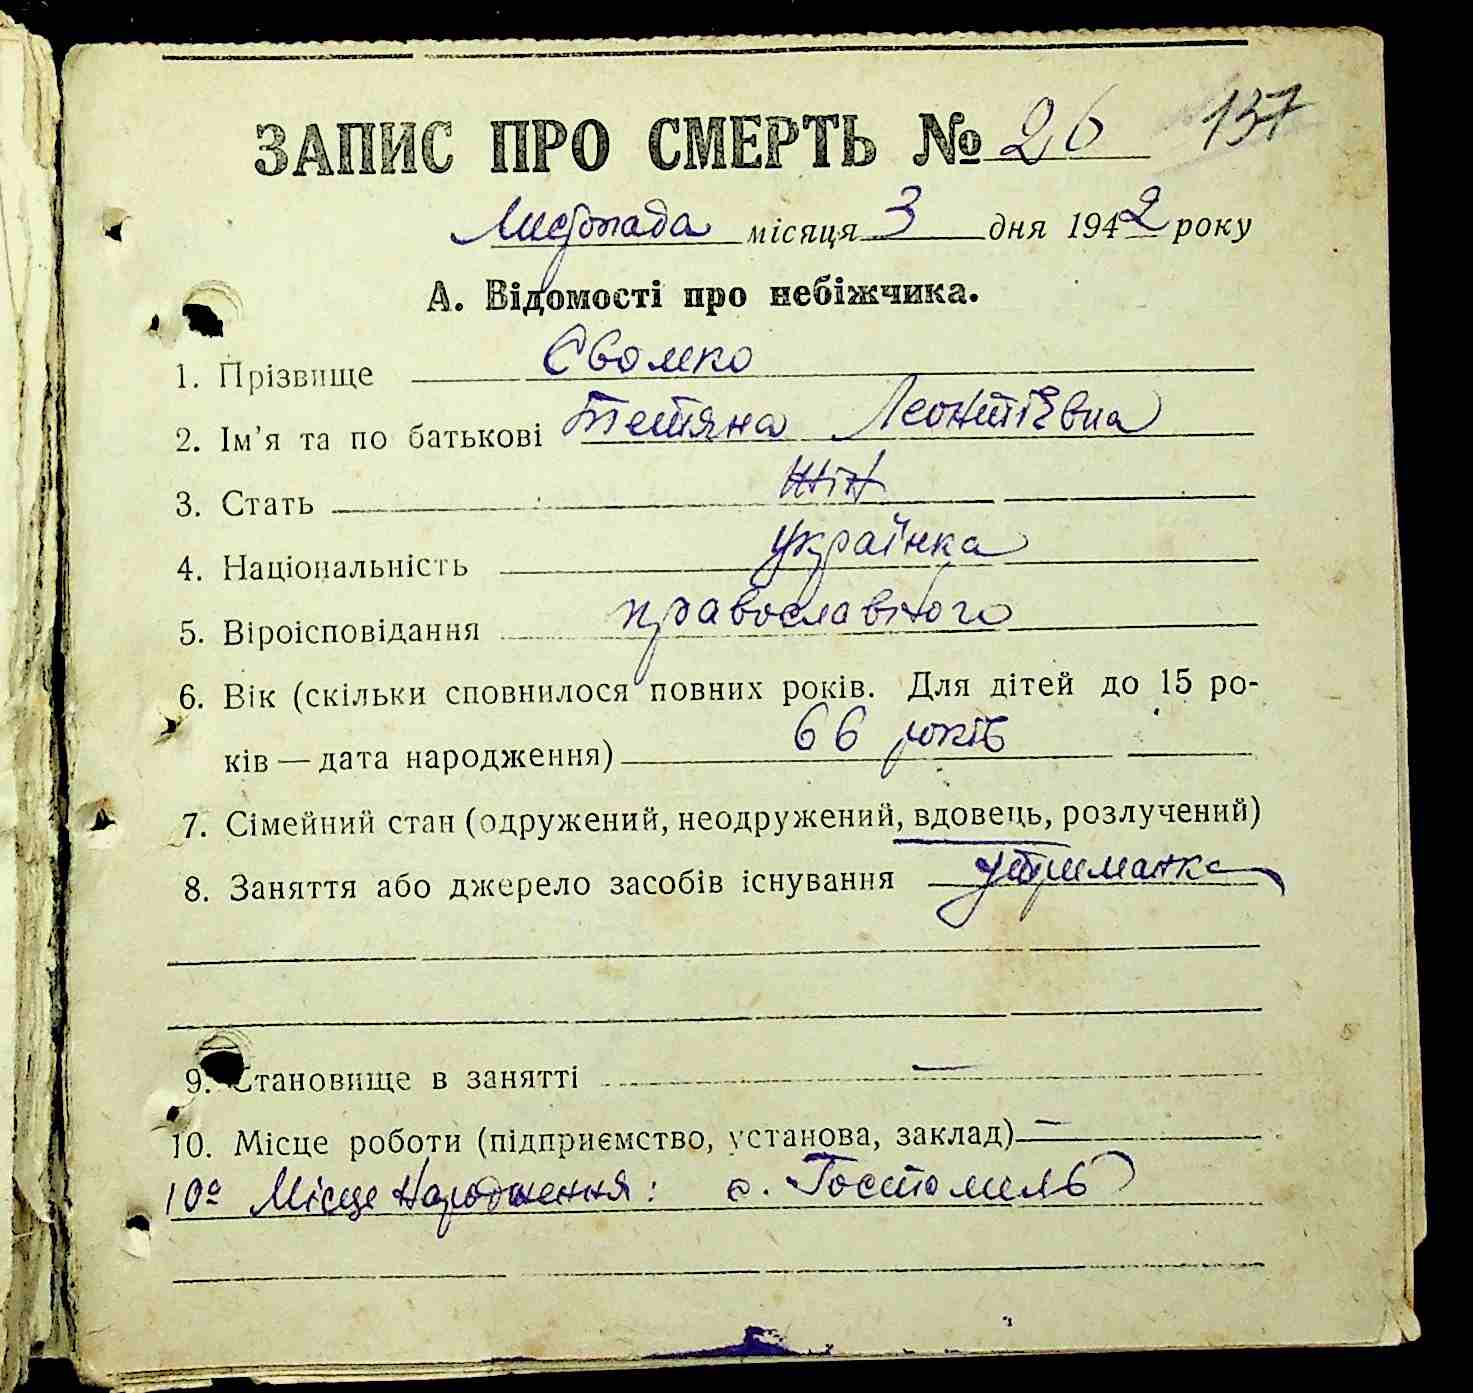 137
ЗАПИС ПРО СМЕРТЬ № 26
Листопада місяця 3 дня 1942 року
А. Відомості про небіжчика.
1. Прізвище Євомко
2. Ім'я та по батькові Тетяна Леонтієвна
3. Стать жін
4. Національність українка
5. Віроісповідання православного
6. Вік (скільки сповнилося повних років. Для дітей до 15 ро-
ків — дата народження) 66 років
7. Сімейний стан (одружений, неодружений, вдовець, розлучений)
8. Заняття або джерело засобів існування утриманка
9. Становище в занятті —
10. Місце роботи (підприємство, установа, заклад) —
10а Місце народження: с. Гостомель